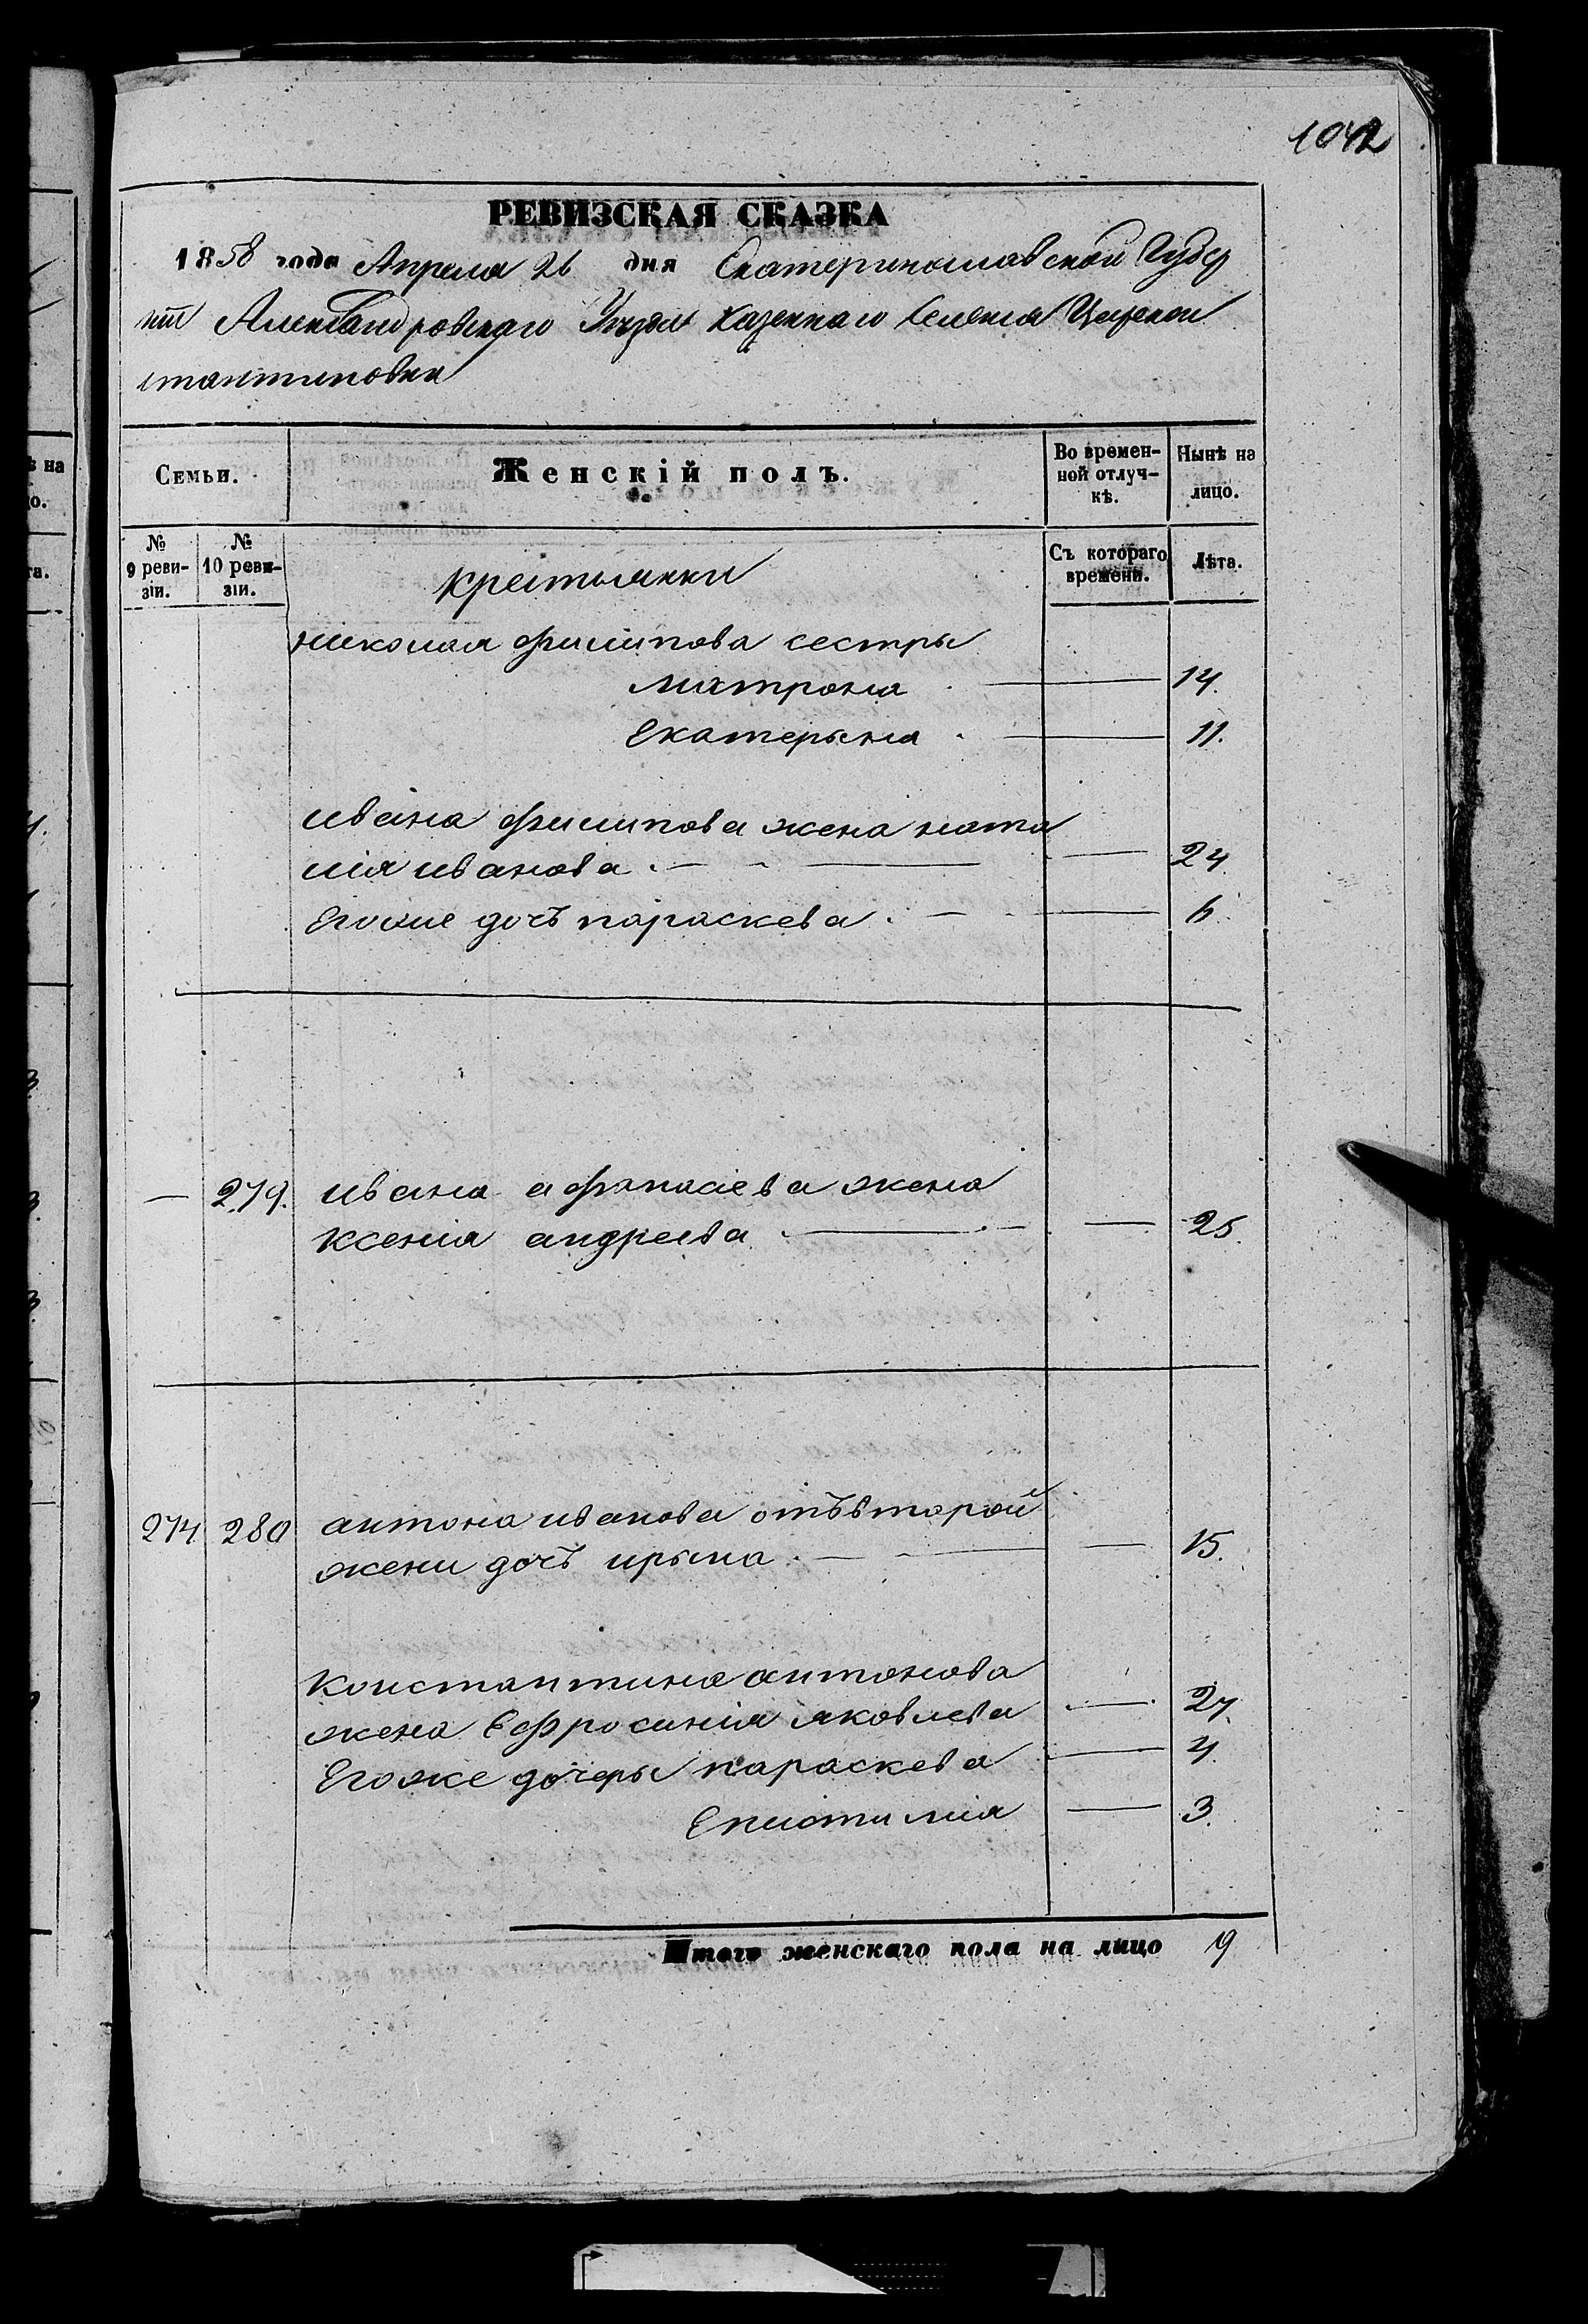 1042
РЕВИЗСКАЯ СКАЗКА
1858 года Апреля 26 дня Екатеринославской Губер
ніи Александровскаго Уѣзда Казеннаго Селенія Цареконстантиновки
Семьи.
Женскій полъ.
Во временной отлучкѣ.
Нынѣ на лицо.
№ 9 ревизіи.
№ 10 ревизіи.
Крестьянки
Съ котораго времени.
Лѣта.
николая филипова сестры
матрона 14.
Екатерына 11.
ивана филипова жена ната
лія иванова 24.
Егоже дочъ параскева 6.
— 279. ивана афанасіева жена
Ксенія андреева 25.
274 280 антона иванова отъвторой
жени дочъ ирына 15.
Константина антонова
жена Ефросинія яковлева 27.
Егоже дочеры параскева 4.
Епистимія 3.
Итого женскаго пола на лицо 9